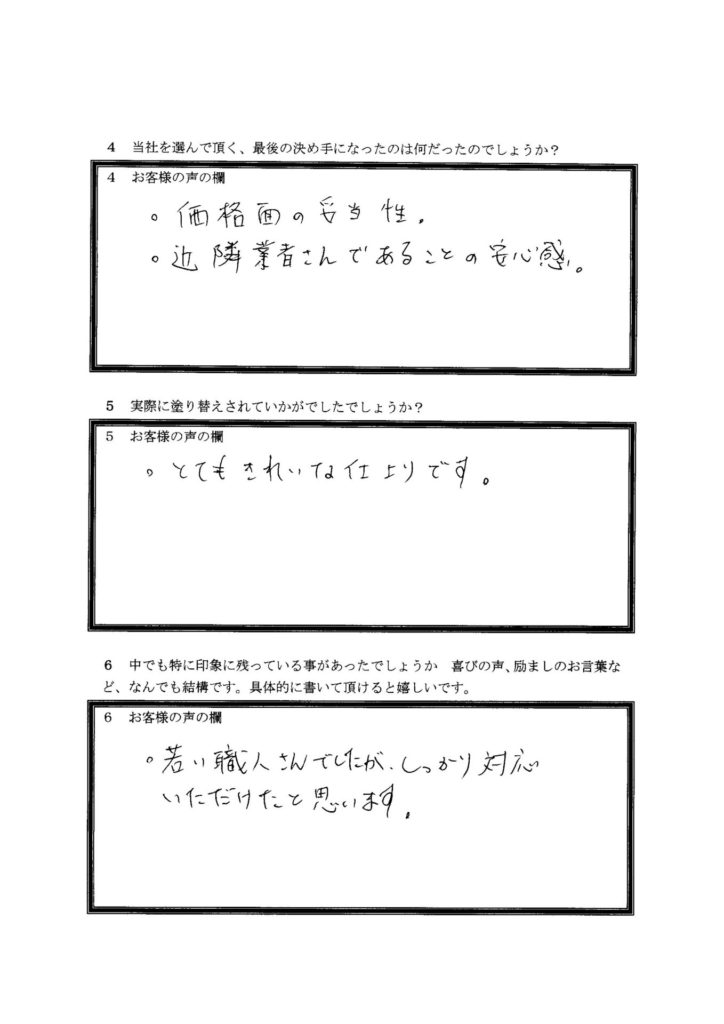 4 当社を選んで頂く、最後の決め手になったのは何だったのでしょうか？
4 お客様の声の欄
。価格面の妥当性。
。近隣業者さんであることの安心感。
5 実際に塗り替えされていかがでしたでしょうか？
5 お客様の声の欄
。とてもきれいな仕上りです。
6 中でも特に印象に残っている事があったでしょうか 喜びの声、励ましのお言葉な
ど、なんでも結構です。具体的に書いて頂けると嬉しいです。
6 お客様の声の欄
。若い職人さんでしたが、しっかり対応
いただけたと思います。